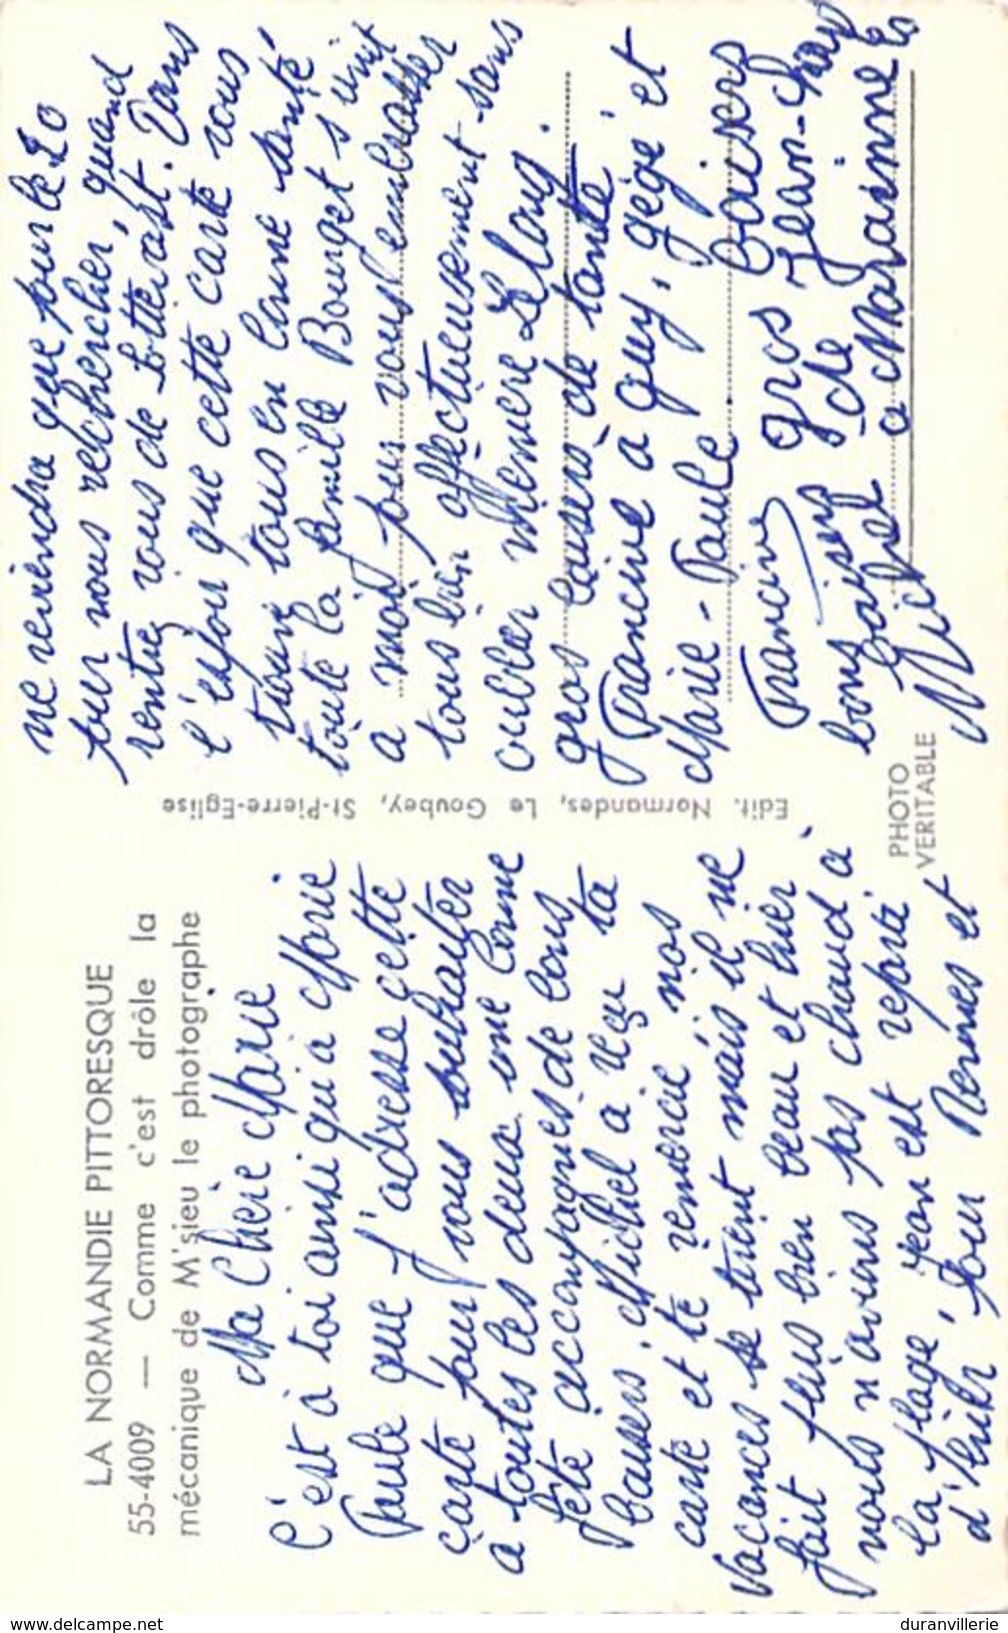 LA NORMANDIE PITTORESQUE
55-4009 — Comme c'est drôle la
mécanique de M'sieu le photographe
Ma Chère Marie
C'est à toi ainsi qu'à Marie
Paule que j'adresse cette
carte pour vous souhaiter
à toutes les deux une bonne
fête accompagnées de bons
baisers. Michel a reçu ta
carte et te remercie nos
vacances se tirent mais il ne
fait plus bien beau et hier
nous n'avions pas chaud à
la plage, Jean est reparti
d'hier pour Rennes et
ne reviendra que pour le 20
pour nous rechercher, quand
rentrez vous de . Dans
l'espoir que cette carte vous
trouve tous en bonne santé
toute la famille Bourget s'unit
à moi pour vous embrasser
tous bien affectueusement sans
oublier Mémère Lelong.
gros baisers de tante
Francine à Guy, gégé et
Marie-Paule
Francine
gros baisers
de Jean-
bons baisers
Michel
a Marainne
Edit. Normandes, Le Goubey, St-Pierre-Eglise
PHOTO
VERITABLE
https://www.delcampe.net
duranvillerie